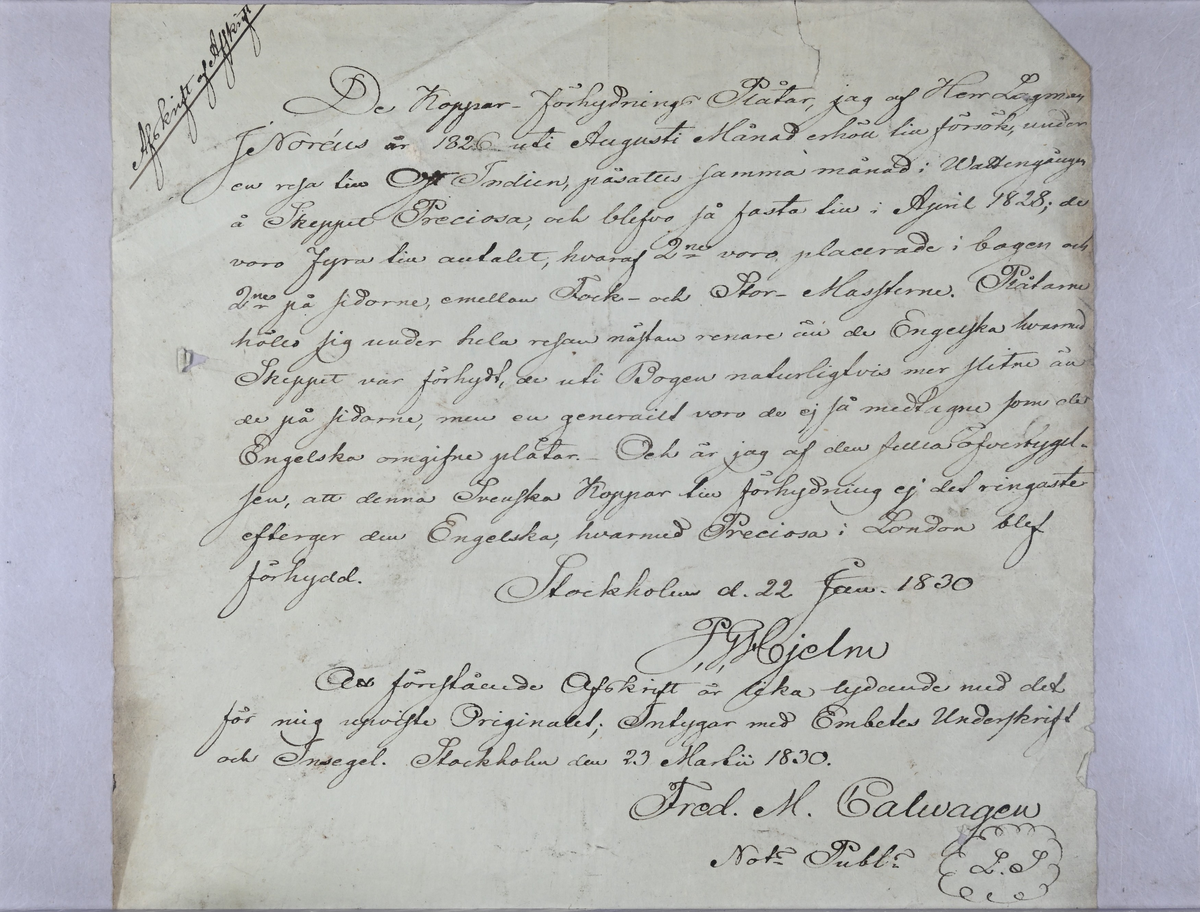 Afskrift af Afskrift
De Koppar-förhydnings Plåtar, jag af Herr Lagman
J Noréus år 1826 uti Augusti Månad erhöll till försök, under
en resa till Ost Indien, påsattes samma månad i Wattengången
å Skeppet Preciosa, och blefvo så fasta till i April 1828; de
voro fyra till antalet, hvaraf 2ne voro placerade i bogen och
2ne på sidorne, emellan Fock- och Stor-Massterne. Plåtarne
höllo sig under hela resan nästan renare än de Engelska hvarmed
Skeppet var förhydt, de uti Bogen naturligtvis mer slitne än
de på sidorne, men en generailt voro de ej så medtagne som de
Engelska omgifne plåtar. – Och är jag af den fulla öfvertygel-
sen, att denna Svenska Koppar till förhydning ej det ringaste
efterger den Engelska, hvarmed Preciosa i London blef
förhydd.
Stockholm d. 22 Jan. 1830
P, G, Hjelm
Att förestående Afskrift är lika lydande med det
för mig upviste Originalet; Intygar med Embetes Underskrift
och Insegel. Stockholm den 23 Martii 1830.
Fred. M. Calwagen
Nots Publs
L.S